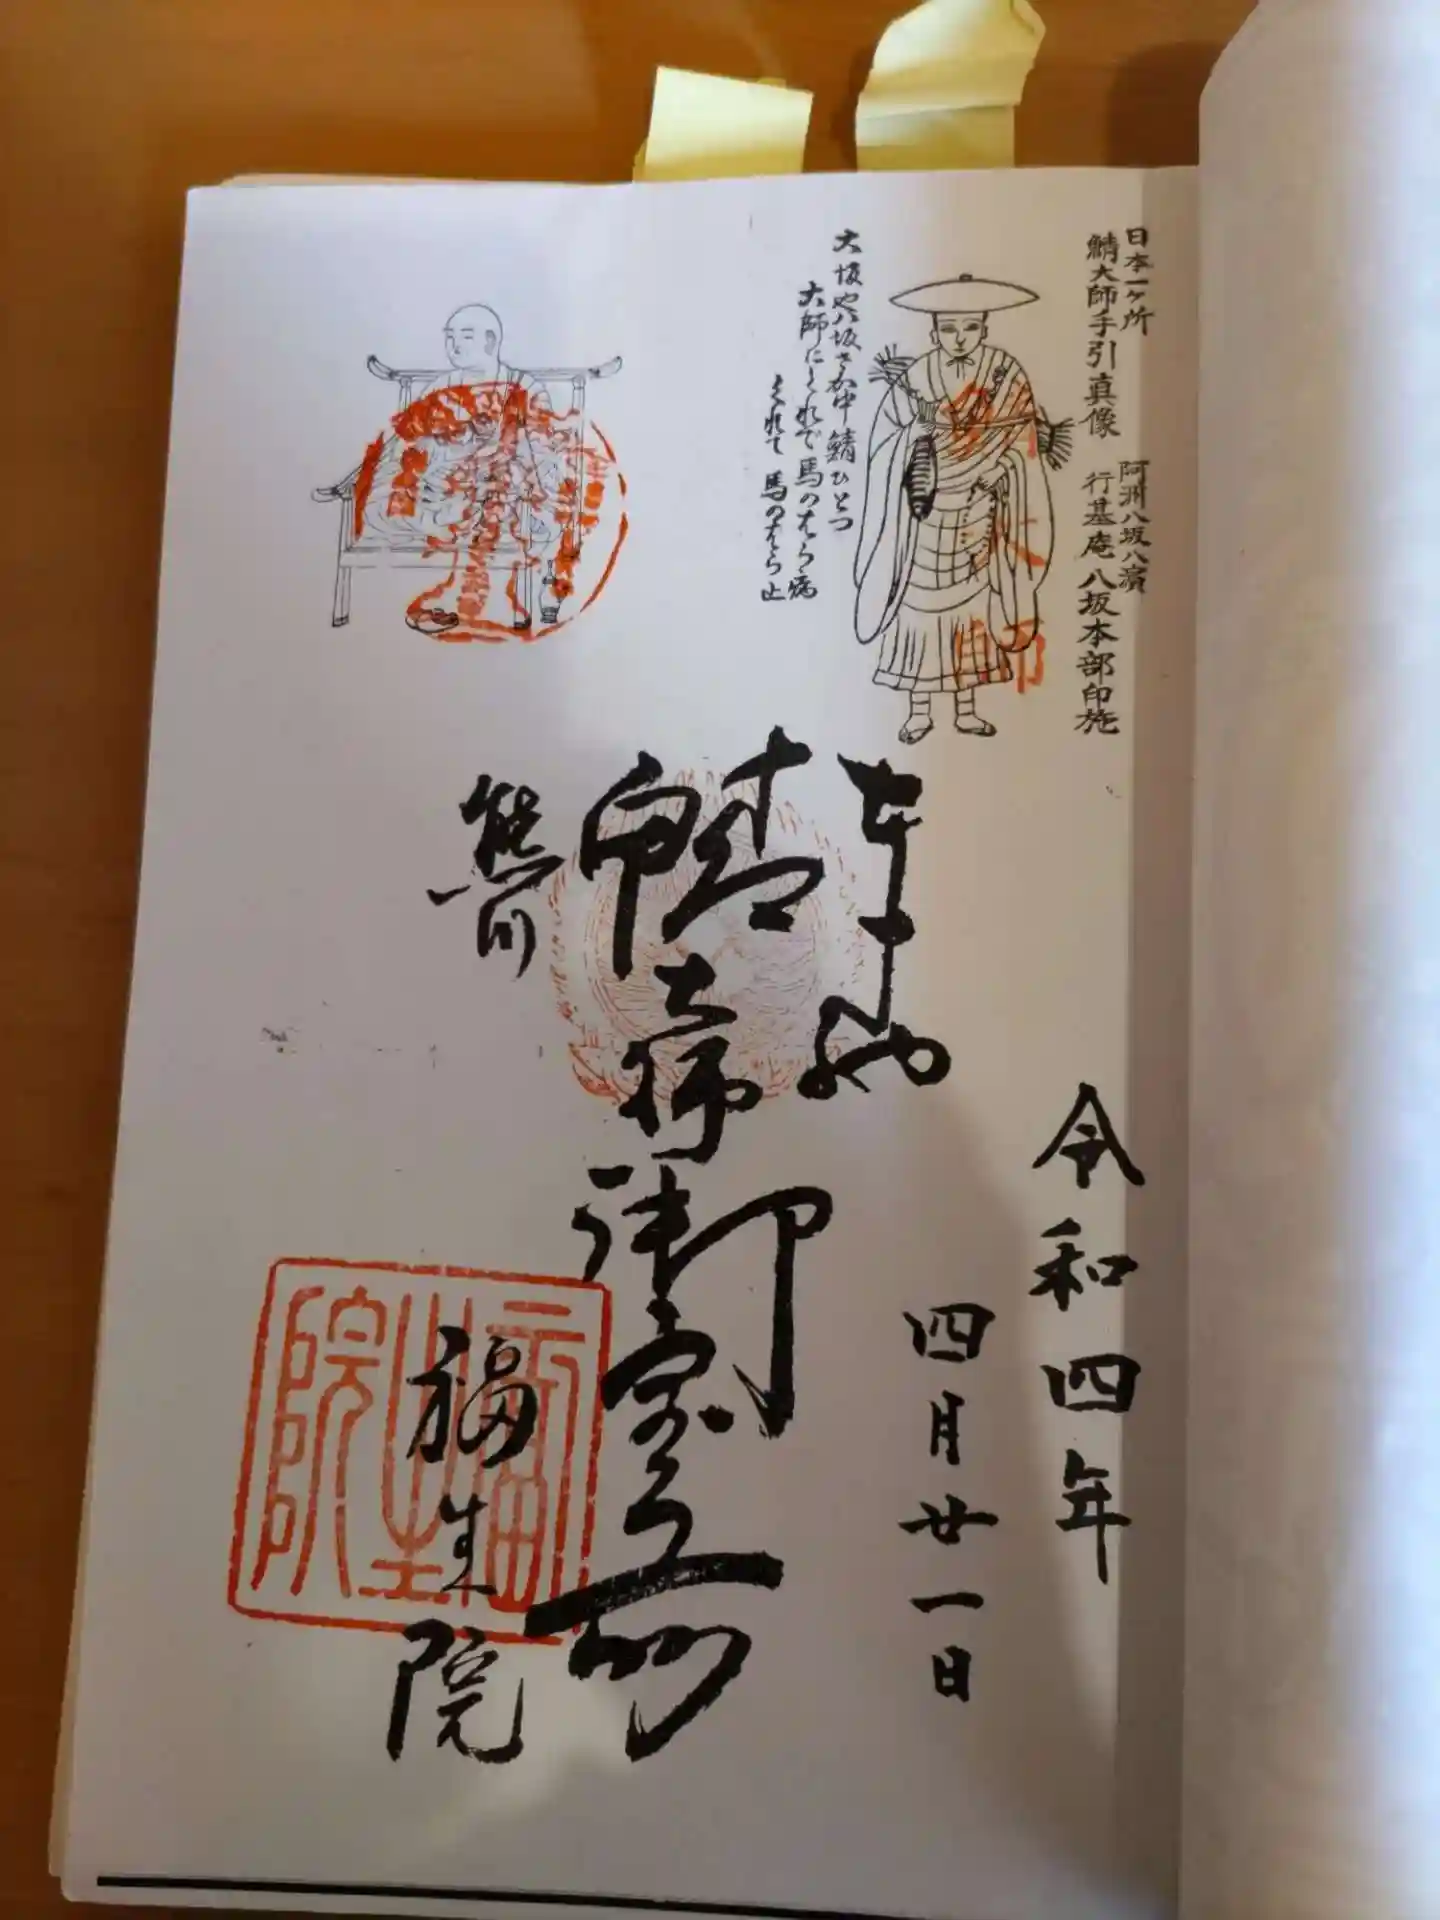 日本一ヶ所
鯖大師手引真像
阿州八坂八濱
行基庵八坂本部印施
大坂や八坂さか中鯖ひとつ
大師にくれで馬のはら病
くれて馬のはら止
令和四年
四月廿一日
奉拝
鯖大師
御宝前
熊川
福生院
福生院